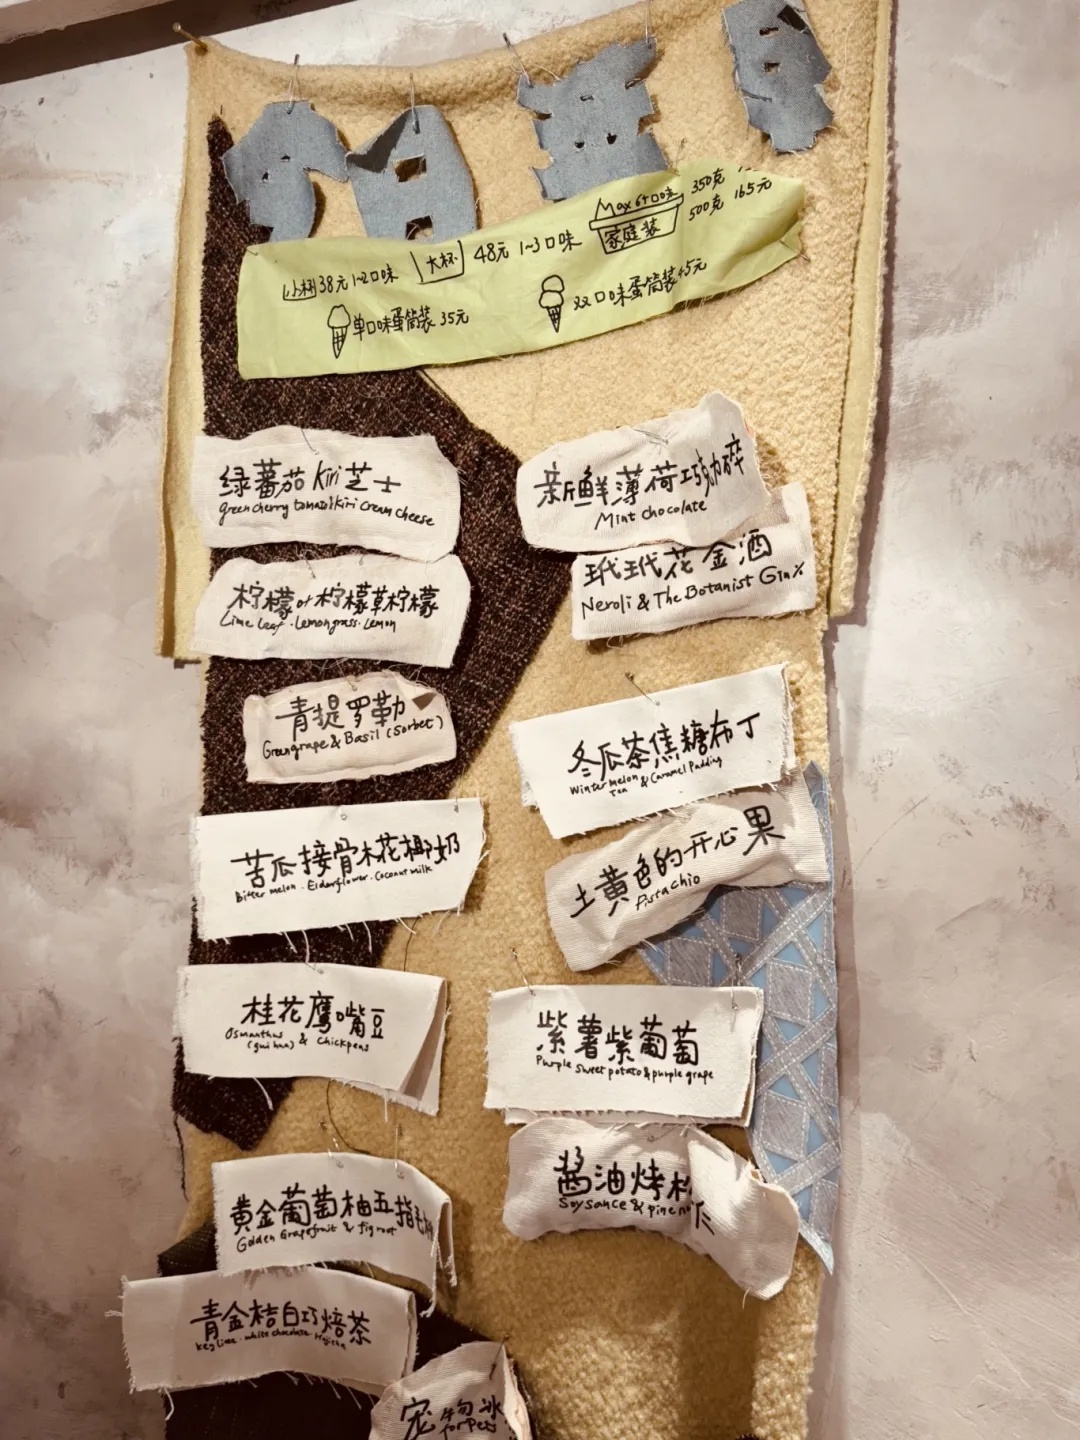 小杯 38元 1~2口味
大杯 48元 1~3口味
Max 6个口味
家庭装
350克
500克 165元
单口味蛋筒装 35元
双口味蛋筒装 45元
绿蕃茄 Kiri 芝士
green cherry tomato & kiri cream cheese
柠檬 or 柠檬草柠檬
Lime leaf · Lemongrass · Lemon
青提罗勒
Greengrape & Basil (Sorbet)
苦瓜接骨木花椰奶
Bitter melon · Elderflower · Coconut milk
桂花鹰嘴豆
Osmanthus & chickpeas
(gui hua)
黄金葡萄柚五指毛
Golden Grapefruit & fig root
青金桔白巧焙茶
key lime · white chocolate · Hojicha
宠物冰
for pets
新鲜薄荷巧克力碎
Mint chocolate
玳玳花金酒
Neroli & The Botanist Gin
冬瓜茶焦糖布丁
Winter melon & Caramel Pudding
Tea
土黄色的开心果
Pistachio
紫薯紫葡萄
Purple sweet potato & purple grape
酱油烤松仁
Soysauce & pine nu